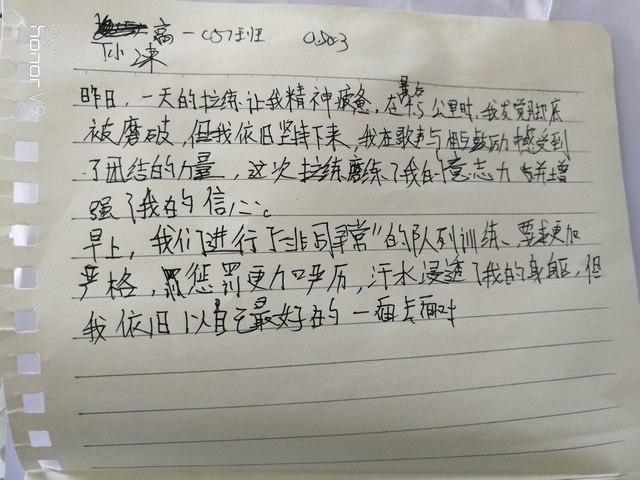 高一(5)班 0503
孙冰
昨日,一天的拉练让我精神疲惫,在最后5公里时,我发觉脚底
被磨破,但我依旧坚持下来,我在歌声与相互鼓励中感受到
了团结的力量,这次拉练磨练了我的意志力并增
强了我的信心。
早上,我们进行了"非同寻常"的队列训练、要求更加
严格,惩罚更加严厉,汗水浸透了我的身躯,但
我依旧以自己最好的一面去面对
honor V9